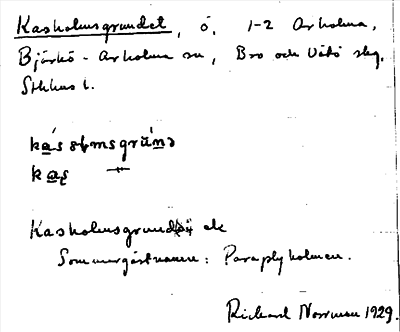 Kasholmsgrundet, ö, 1-2 Arholma,
Björkö-Arholma sn, Bro och Vätö skg.
Sthlms l.
kas
Kasholmsgrund
Sommargästnamn: Paraplyholmen.
Richard Norrman 1929.